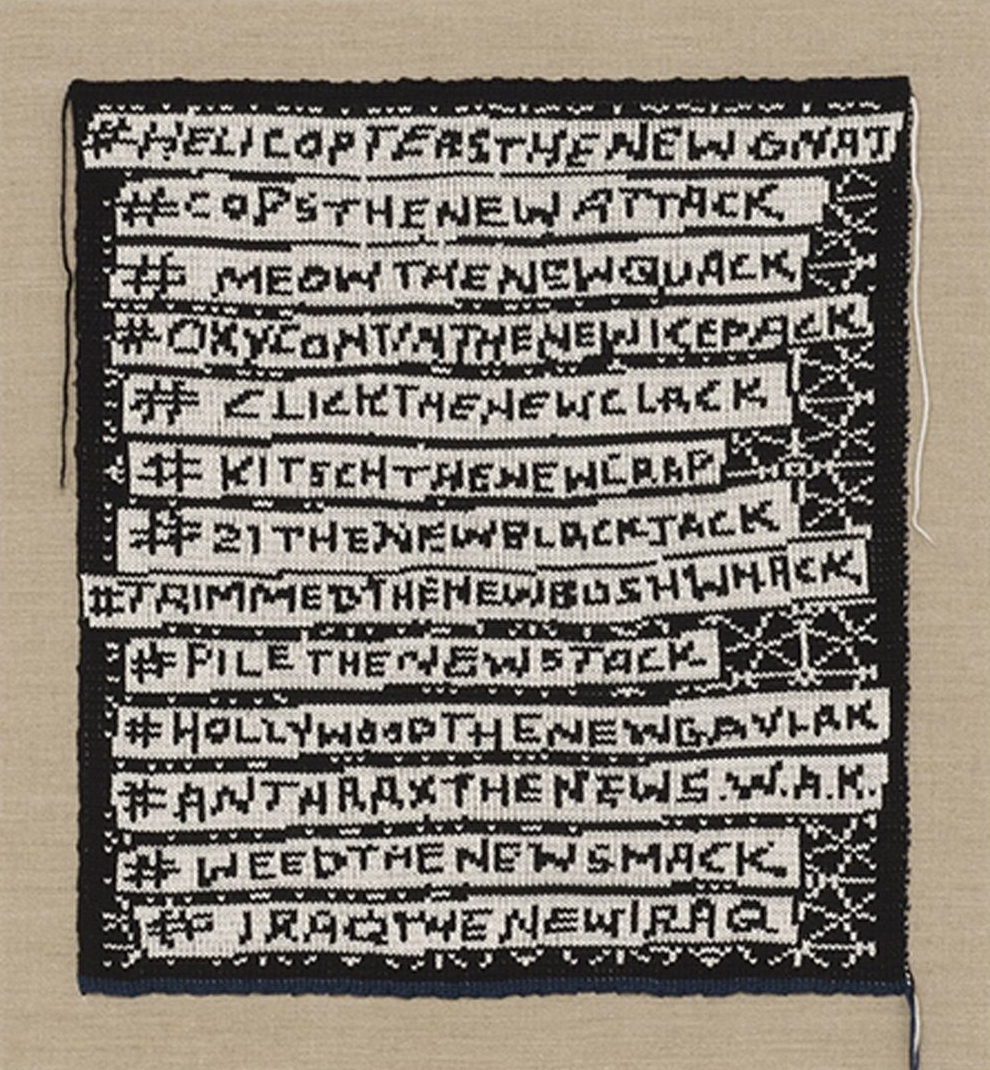 #HELICOPTERSTHENEW GNAT
#COPSTHENEW ATTACK
# MEOW THENEWQUACK
#OXYCONTINTHENEWICEPACK
# CLICKTHENEWCLACK
# KITSCHTHENEWCRAP
# 21THENEWBLACKJACK
#TRIMMEDTHENEWBUSHWHACK
#PILE THENEWSTACK
#HOLLYWOODTHENEWGAVLAK
#ANTHRAXTHENEWS.W.A.K.
# WEEDTHENEWSMACK
# IRAQTHENEWIRAQ